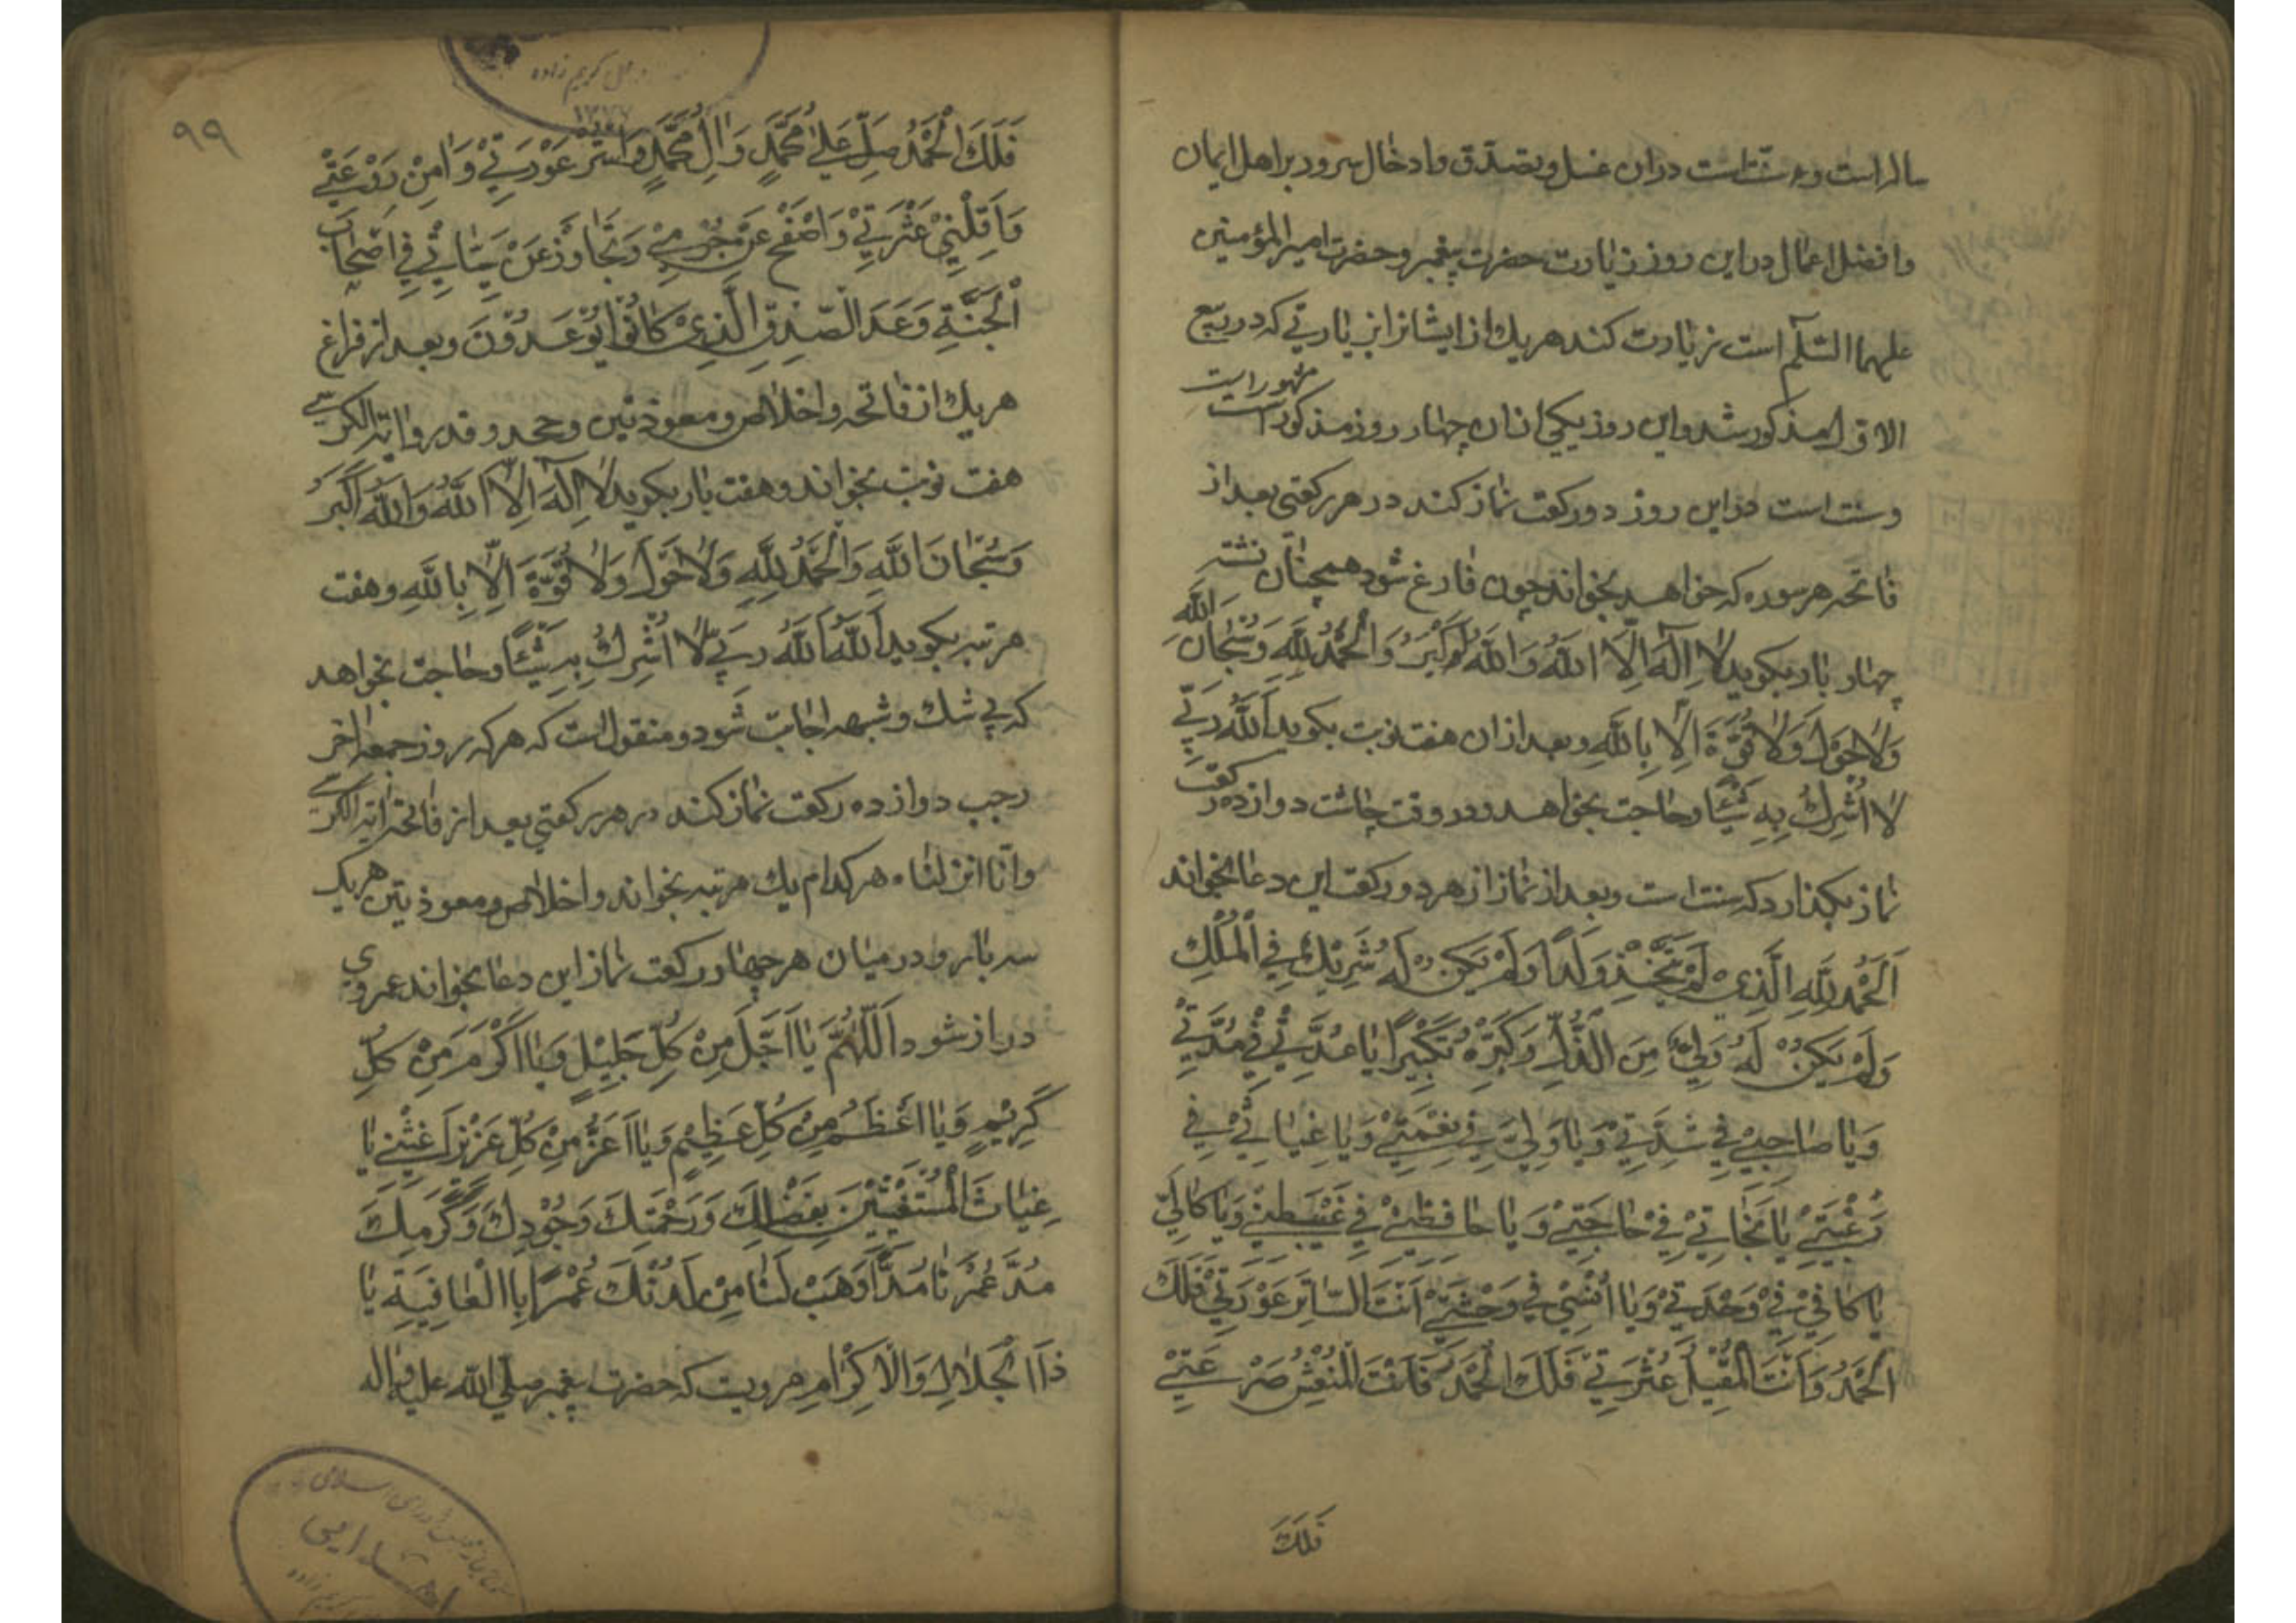 سالراست و سنت است دران غسل و تصدق و ادخال سرور بر اهل ایمان
و افضل اعمال در این روز زیارت حضرت پیغمبر و حضرت امیر المؤمنین
علیهما السّلم است زیارت کند هر یک از ایشانرا بزیارتی که در ربیع
الاول مذکور شد و این روز یکی از ان چهار روز مذکور است
مشهور است
و سنت است در این روز دو رکعت نماز کند در هر رکعتی بعد از
فاتحه هر سوره که خواهد بخواند چون فارغ شود همچنان نشسته
چهار بار بکوید لا اِلٰهَ اِلَّا اللهُ وَاللهُ اَکْبَرُ وَالْحَمْدُ لِلّٰهِ وَسُبْحَانَ اللهِ
وَلَا حَوْلَ وَلَا قُوَّةَ اِلَّا بِاللهِ و بعد از ان هفت نوبت بکوید اَللهُ رَبِّی
لَا اُشْرِكُ بِهِ شَیْئًا و حاجت بخواهد و در وقت چاشت دوازده رکعت
نماز بکذارد که سنت است و بعد از نماز از هر دو رکعت این دعا بخواند
اَلْحَمْدُ لِلّٰهِ الَّذِیْ لَمْ یَتَّخِذْ وَلَدًا وَلَمْ یَکُنْ لَهُ شَرِیْكٌ فِی الْمُلْكِ
وَلَمْ یَکُنْ لَهُ وَلِیٌّ مِنَ الذُّلِّ وَکَبِّرْهُ تَکْبِیْرًا یَا عُدَّتِیْ فِیْ مُدَّتِیْ
وَیَا صَاحِبِیْ فِیْ شِدَّتِیْ وَیَا وَلِیِّیْ فِیْ نِعْمَتِیْ وَیَا غِیَاثِیْ فِیْ
رَغْبَتِیْ یَا نَجَاتِیْ فِیْ حَاجَتِیْ وَیَا حَافِظِیْ فِیْ غَیْبَتِیْ وَیَا کَالِئِیْ
یَا کَافِیَّ فِیْ وَحْدَتِیْ وَیَا اُنْسِیْ فِیْ وَحْشَتِیْ اَنْتَ السَّاتِرُ عَوْرَتِیْ فَلَكَ
الْحَمْدُ وَاَنْتَ الْمُقِیْلُ عَثْرَتِیْ فَلَكَ الْحَمْدُ فَاَنْتَ الْمُنْعِشُ صَرْعَتِیْ
فَلَكَ
۹۹
فَلَكَ الْحَمْدُ صَلِّ عَلٰی مُحَمَّدٍ وَاٰلِ مُحَمَّدٍ وَاسْتُرْ عَوْرَتِیْ وَاٰمِنْ رَوْعَتِیْ
وَاَقِلْنِیْ عَثْرَتِیْ وَاصْفَحْ عَنْ جُرْمِیْ وَتَجَاوَزْ عَنْ سَیِّئَاتِیْ فِیْ اَصْحَابِ
الْجَنَّةِ وَعْدَ الصِّدْقِ الَّذِیْ کَانُوْا یُوْعَدُوْنَ و بعد از فراغ
هر یك از فاتحه و اخلاص و معوذتین و جحد و قدر و ایة الکرسی
هفت نوبت بخواند و هفت بار بکوید لَا اِلٰهَ اِلَّا اللهُ وَاللهُ اَکْبَرُ
وَسُبْحَانَ اللهِ وَالْحَمْدُ لِلّٰهِ وَلَا حَوْلَ وَلَا قُوَّةَ اِلَّا بِاللهِ و هفت
مرتبه بکوید اَللهُ اَللهُ رَبِّیْ لَا اُشْرِكُ بِهِ شَیْئًا و حاجت بخواهد
که بی شك و شبهه اجابت شود و منقول است که هر که روز جمعه اخر
رجب دوازده رکعت نماز کند در هر رکعتی بعد از فاتحه ایة الکرسی
و انا انزلناه هر کدام یك مرتبه بخواند و اخلاص و معوذتین هر یک
سه بار و در میان هر چهار رکعت نماز این دعا بخواند عمر وی
دراز شود اَللّٰهُمَّ یَا اَجَلَّ مِنْ کُلِّ جَلِیْلٍ وَیَا اَکْرَمَ مِنْ کُلِّ
کَرِیْمٍ وَیَا اَعْظَمَ مِنْ کُلِّ عَظِیْمٍ وَیَا اَعَزَّ مِنْ کُلِّ عَزِیْزٍ اَغِثْنِیْ یَا
غِیَاثَ الْمُسْتَغِیْثِیْنَ بِفَضْلِكَ وَرَحْمَتِكَ وَجُوْدِكَ وَکَرَمِكَ
مُدَّ عُمْرَنَا مَدًّا وَهَبْ لَنَا مِنْ لَدُنْكَ عُمْرًا بِالْعَافِیَةِ یَا
ذَا الْجَلَالِ وَالْاِکْرَامِ مرویست که حضرت پیغمبر صلی الله علیه و اله
کریم زاده
اهدایی
کریم زاده